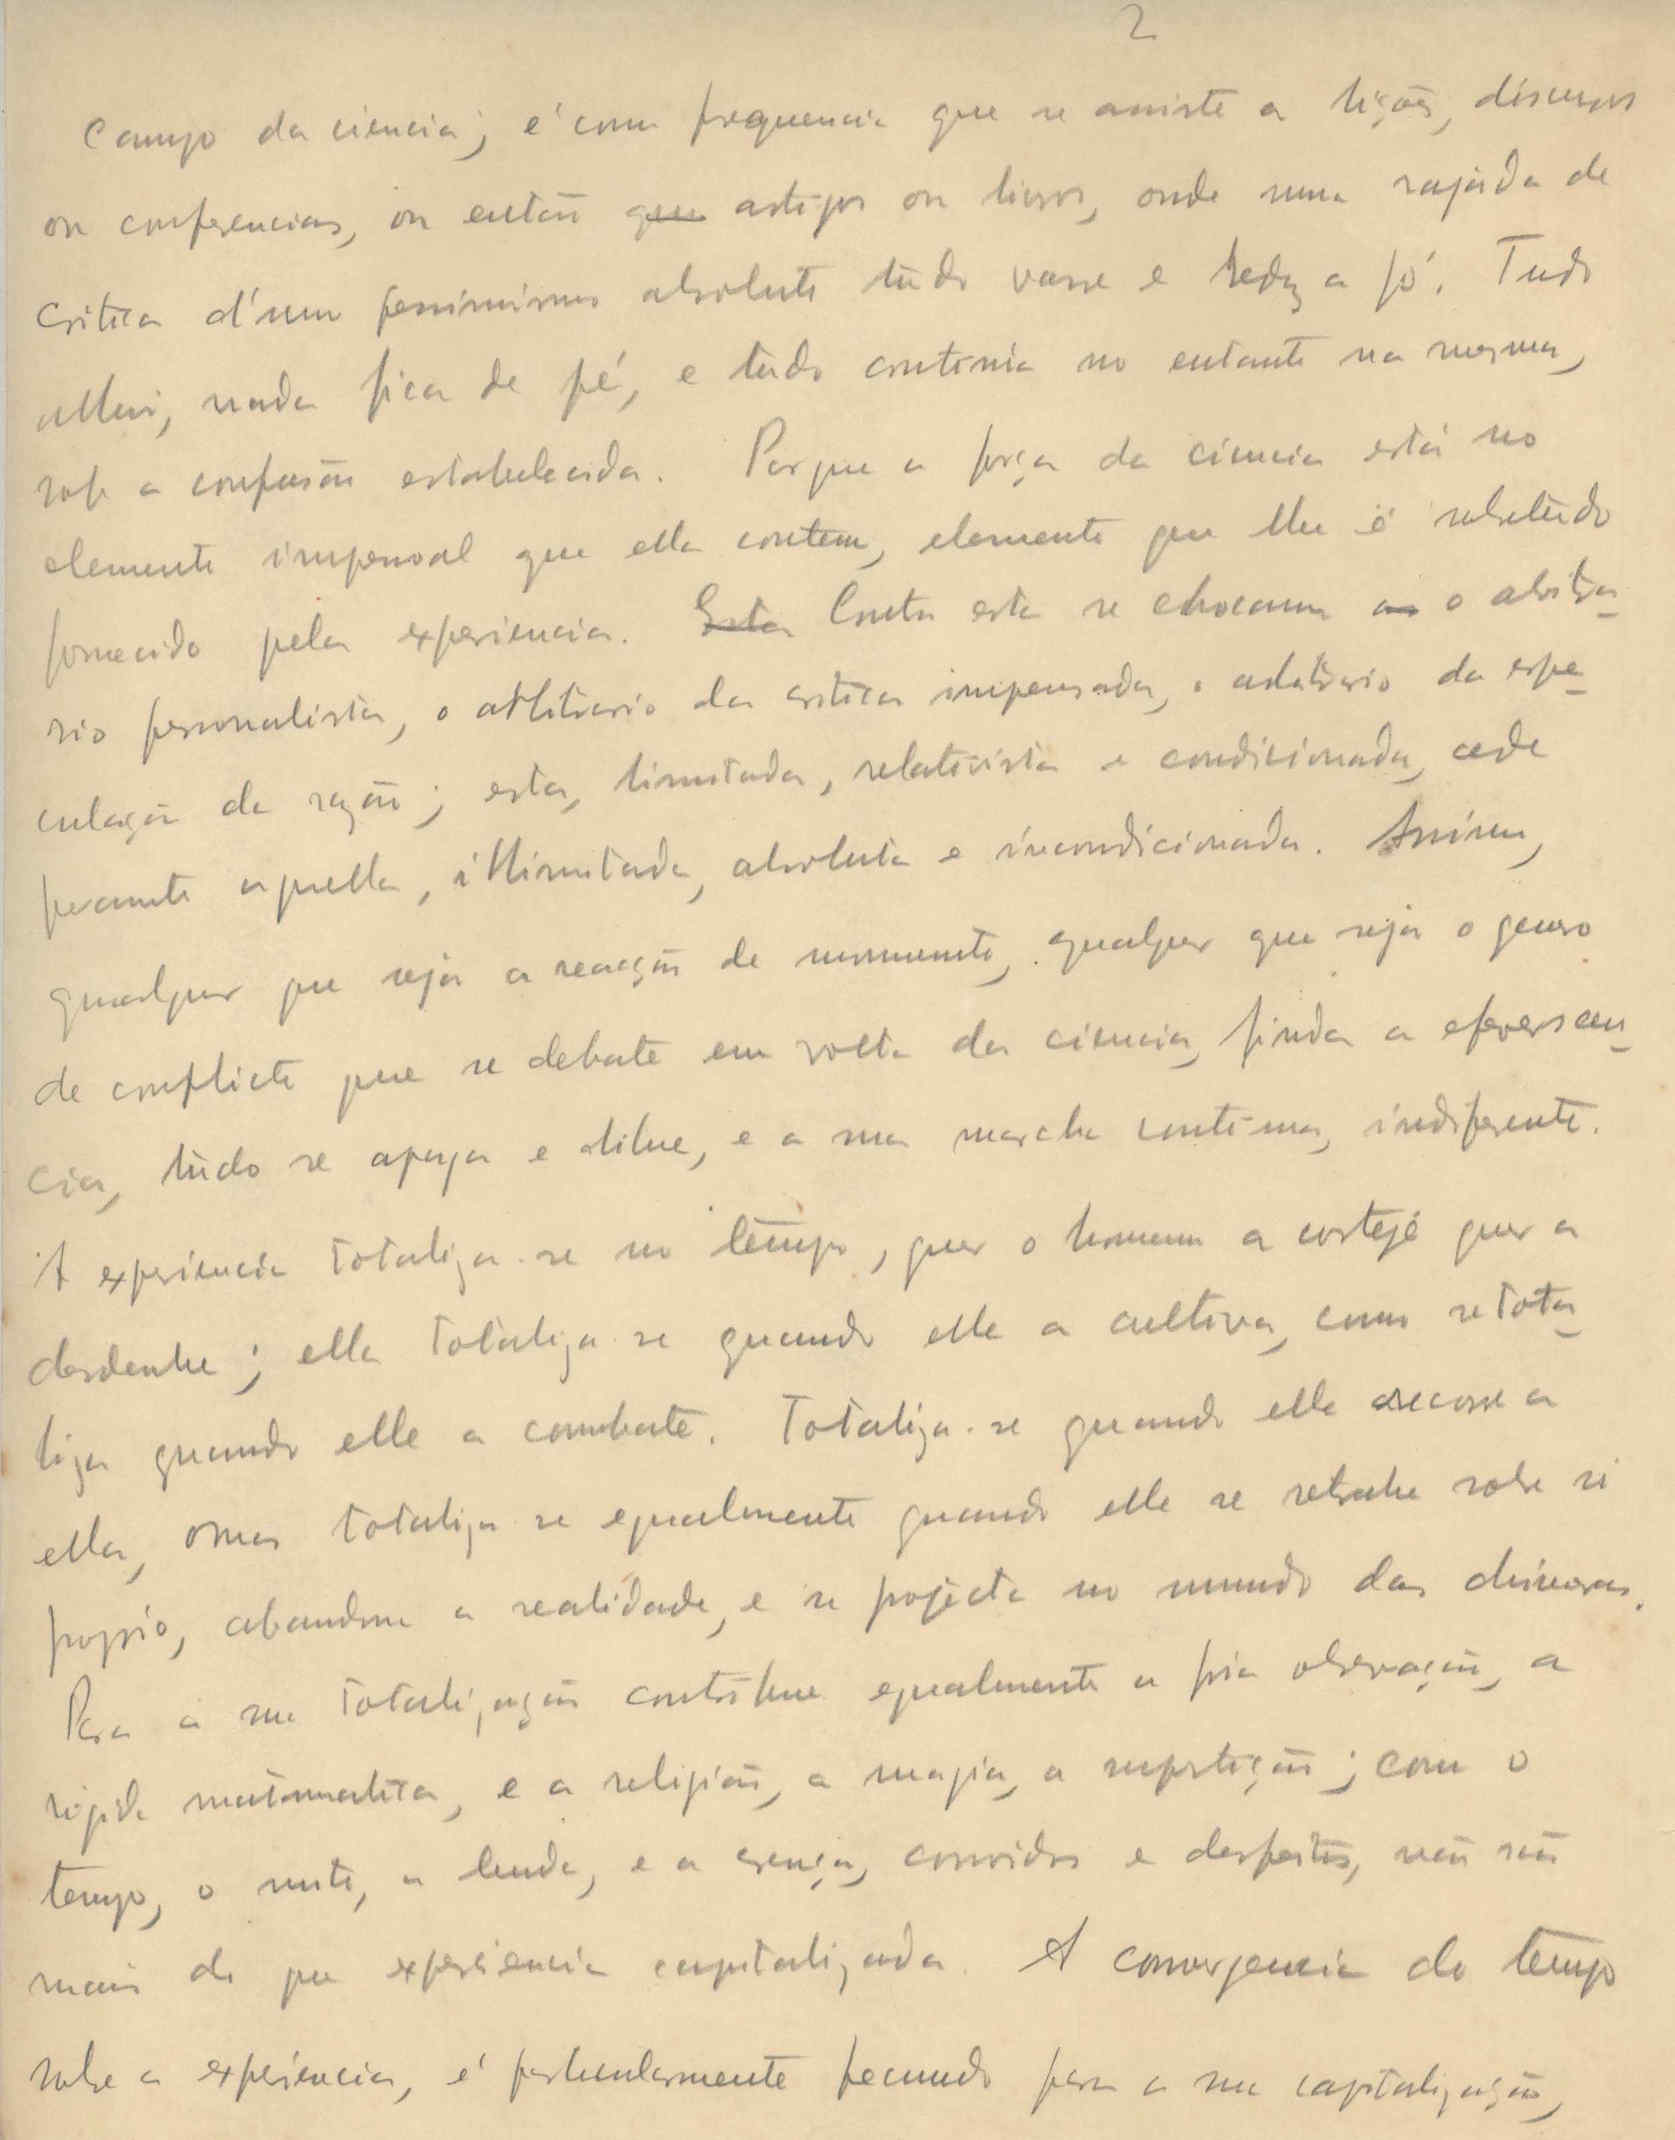 2
campo da ciencia; é com frequencia que se assiste a lições, discursos
ou conferencias, ou então que artigos ou livros, onde uma rajáda de
critica d'um pessimismo absoluto tudo varre e reduz a pó. Tudo
allui, nada fica de pé, e tudo continúa no entanto na mesma,
sob a confusão estabelecida. Porque a força da ciencia está no
elemento impessoal que ella contem, elemento que lhe é sobretudo
fornecido pela experiencia. Esta Contra esta se chocam as o abitra-
rio personalista, o arbitrario da critica impensada, o arbitrario da espe-
culação da razão; esta, limitada, relativista e condicionada, cede
perante aquella, illimitada, absoluta e incondicionada. Assim,
qualquer que seja a reacção de momento, qualquer que seja o genero
de conflicto que se debate em volta da ciencia, finda a eferverscen-
cia, tudo se apaga e dilue, e a sua marcha continua, indiferente.
A experiencia totaliza-se no tempo, quer o homem a corteje quer a
desdenhe; ella totaliza-se quando elle a cultiva, como se tota-
liza quando elle a combate. Totaliza-se quando elle recorre a
ella, mas totaliza-se egualmente quando elle se retrahe sobre si
proprio, abandona a realidade, e se projecta no mundo das chimeras.
Para a sua totalização contribue egualmente a fria observação, a
rigida matematica, e a religião, a magia, a superstição; com o
tempo, o mito, a lenda, e a crença, convividos e desfeitos, não são
mais do que experiencia capitalizada. A convergencia do tempo
sobre a experiencia, é particularmente fecundo para a sua capitalização,